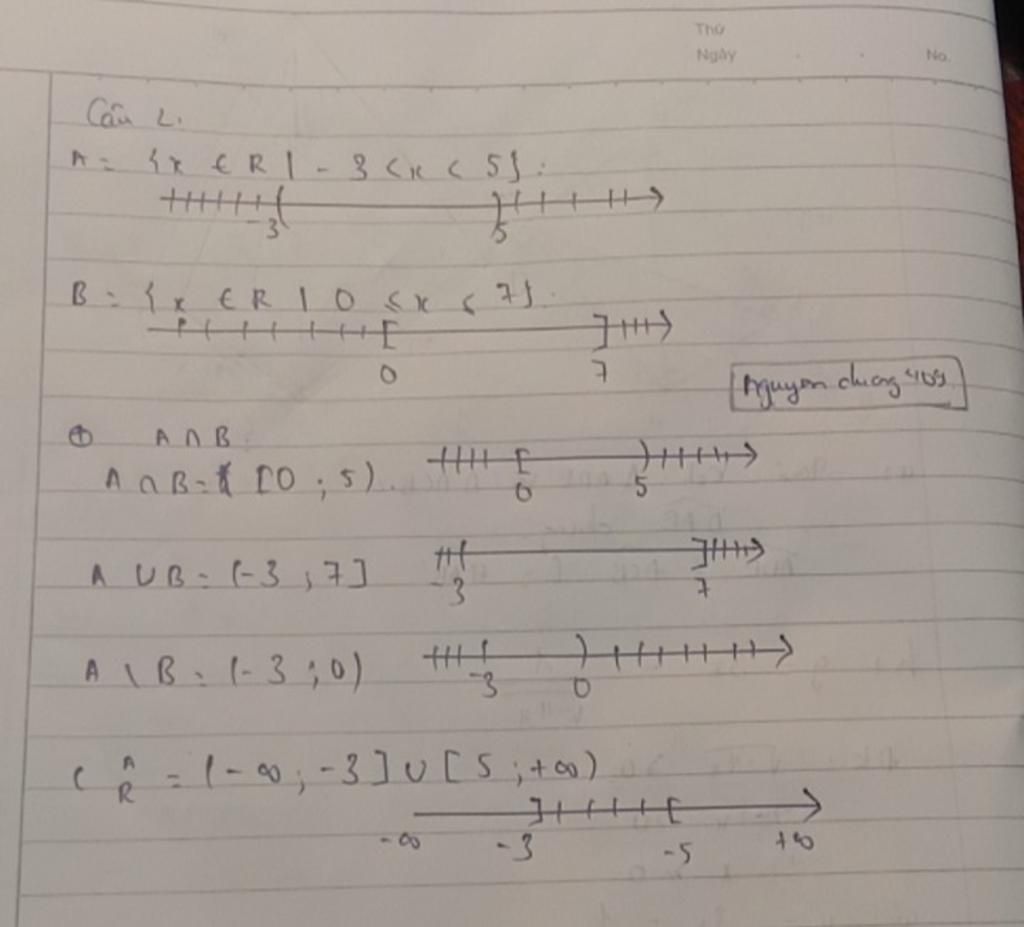 Thứ
Ngày . . No.
Câu 2.
A = {x ∈ R | -3 < x < 5}.
-3 5
B = {x ∈ R | 0 ≤ x ≤ 7}.
0 7
Nguyen chung 409
⊕ A ∩ B
A ∩ B = [0 ; 5)
0 5
A ∪ B = (-3 ; 7]
-3 7
A \ B = (-3 ; 0)
-3 0
C A R = (-∞ ; -3] ∪ [5 ; +∞)
-∞ -3 -5 +∞